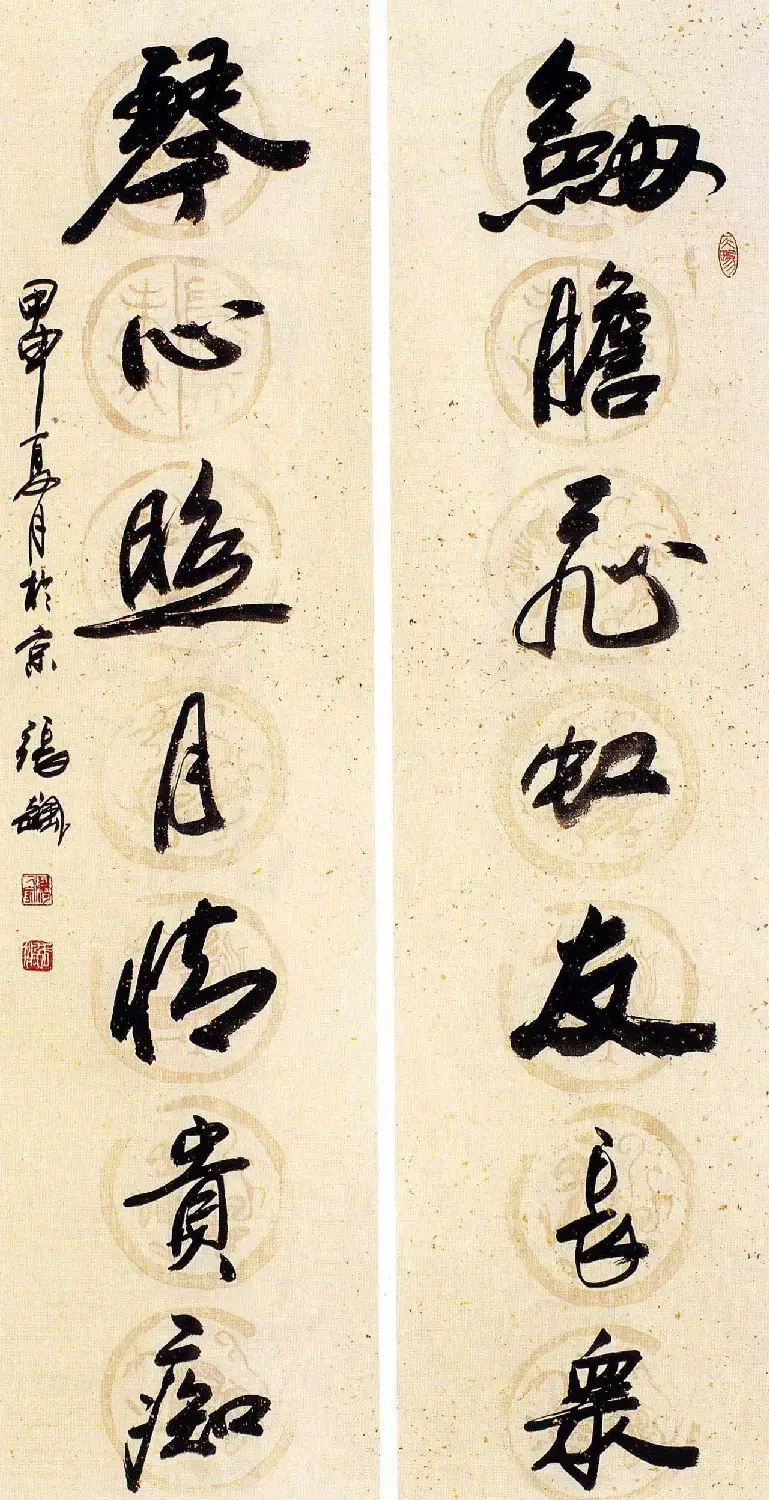 劍膽飛虹友長眾
琴心照月情貴痴
甲申夏月於京 張飆